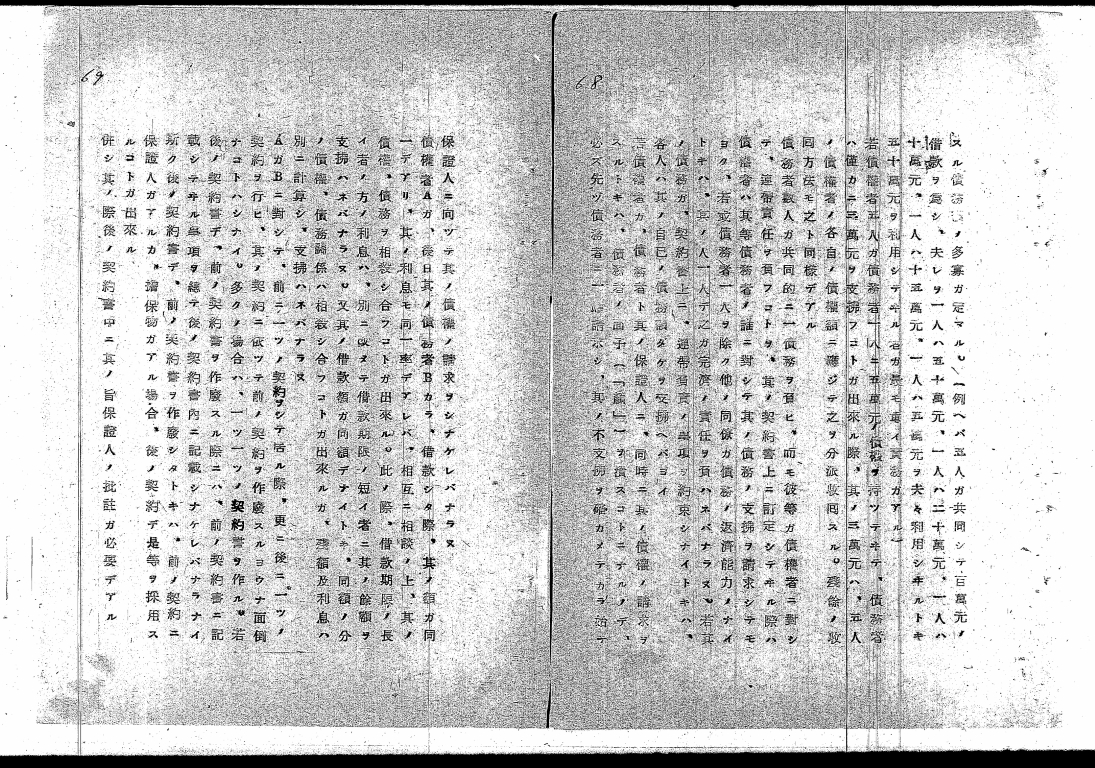 68
スル債務額ノ多寡ガ定マル。(一例ヘバ五人ガ共同シテ百萬元ノ
借款ヲ爲シ、夫レヲ一人ハ五十萬元、一人ハ二十萬元、一人ハ
十萬元、一人ハ十五萬元、一人ハ五萬元ヲ夫々利用シヰルトキ
五十萬元ヲ利用シテヰル者ガ最モ重イ責務ガアル)
若債權者五人ガ債務者一人ニ五萬元ノ債權ヲ持ツテヰテ、債務者
ハ僅カニ三萬元ヲ支拂フコトガ出來ル際、其ノ三萬元ハ、五人
ノ債權者ノ各自ノ債權額ニ應ジテ之ヲ分派收囘スル。殘餘ノ收
囘方法モ之ト同樣デアル
債務者數人ガ共同的ニ一債務ヲ負ヒ、而モ彼等ガ債權者ニ對シ
テ、連帶責任ヲ負フコトヲ、其ノ契約書上ニ訂定シテヰル際ハ
債權者ハ其等債務者ノ誰ニ對シテ其ノ債務ノ支拂ヲ請求シテモ
ヨク、若或債務者一人ヲ除ク他ノ同僚ガ債務ノ返濟能力ノナイ
トキハ、其ノ人一人デ之ガ完濟ノ責任ヲ負ハネバナラヌ。若其
ノ債務ガ、契約書上ニ、連帶負責ノ事項ヲ約束シナイトキハ、
各人ハ其ノ自己ノ債務額ダケヲ支拂ヘバヨイ
若債權者ガ、債務者ト其ノ保證人ニ、同時ニ其ノ債權ノ請求ヲ
スルトキハ、債務者ノ面子(「顏」)ヲ潰スコトニナルノデ、
必ズ先ヅ債務者ニ請求シ、其ノ不支拂ヲ確カメテカラ始テ
69
保證人ニ向ツテ其ノ債權ノ請求ヲシナケレバナラヌ
債權者Aガ、後日其ノ債務者Bカラ、借款シタ際、其ノ額ガ同
一デアリ、其ノ利息モ同一率デアレバ、相互ニ相談ノ上、其ノ
債權、債務ヲ相殺シ合フコトガ出來ル。此ノ際、借款期限ノ長
イ者ノ方ノ利息ハ、別ニ改メテ借款期限ノ短イ者ニ其ノ餘額ヲ
支拂ハネバナラヌ。又其ノ借款額ガ同額デナイトキ、同額ノ分
ノ債權、債務關係ハ相殺シ合フコトガ出來ルガ、殘額及利息ハ
別ニ計算シ、支拂ハネバナラヌ
AガBニ對シテ、前ニ一ツノ契約ヲシテ居ル際、更ニ後ニ一ツノ
契約ヲ行ヒ、其ノ契約ニ依ツテ前ノ契約ヲ作廢スルヨウナ面倒
ナコトハシナイ。多クノ場合ハ、一ツ一ツノ契約書ヲ作ル。若
後ノ契約書デ、前ノ契約書ヲ作廢スル際ニハ、前ノ契約書ニ記
載シテヰル事項ヲ總テ後ノ契約書內ニ記載シナケレバナラナイ
斯ク後ノ契約書デ、前ノ契約書ヲ作廢シタトキハ、前ノ契約ニ
保證人ガアルカ、擔保物ガアル場合、後ノ契約デ是等ヲ採用ス
ルコトガ出來ル
併シ其ノ際後ノ契約書中ニ其ノ旨保證人ノ批註ガ必要デアル